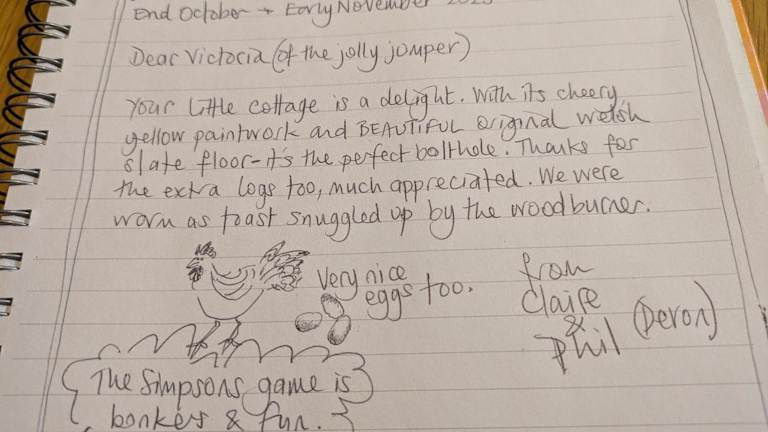 End October → Early November
Dear Victoria (of the jolly jomper)
Your little cottage is a delight. With its cheery
yellow paintwork and BEAUTIFUL original welsh
slate floor-it's the perfect bolthole. Thanks for
the extra logs too, much appreciated. We were
warm as toast snuggled up by the woodburner.
Very nice
eggs too.
from
Claire
&
Phil (Devon)
The Simpsons game is
bonkers & fun.